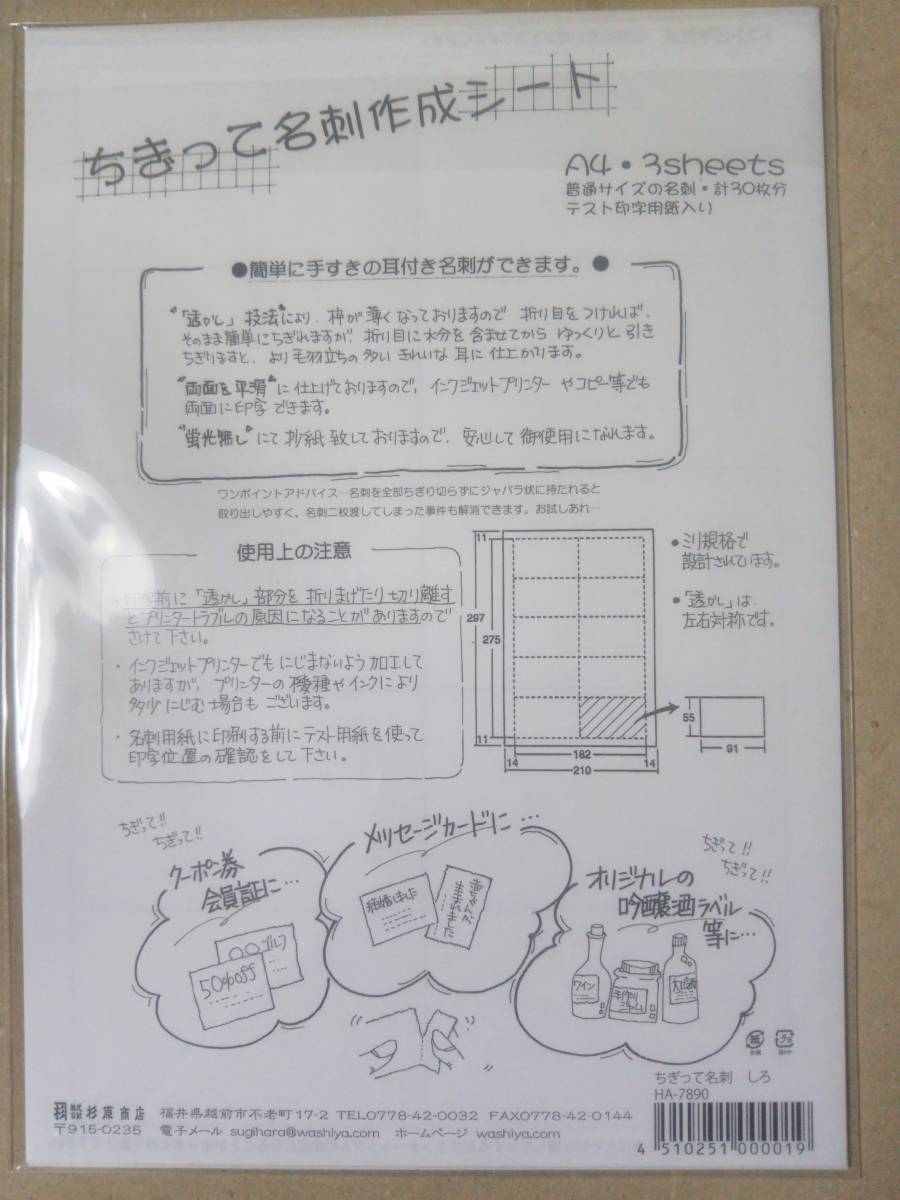 ちぎって名刺作成シート
A4・3sheets
普通サイズの名刺・計30枚分
テスト印字用紙入り
●簡単に手すきの耳付き名刺ができます。●
"「透かし」技法"により、枠が薄くなっておりますので 折り目をつければ、
そのまま簡単にちぎれますが、折り目に水分を含ませてから ゆっくりと引き
ちぎりますと、より毛羽立ちの多い きれいな耳に仕上がります。
"両面を平滑"に仕上げておりますので、インクジェットプリンター やコピー等でも
両面に印字できます。
"蛍光無し"にて抄紙致しておりますので、安心して御使用になれます。
ワンポイントアドバイス…名刺を全部ちぎり切らずにジャバラ状に持たれると
取り出しやすく、名刺二枚渡してしまった事件も解消できます。お試しあれ…
使用上の注意
・印字前に「透かし」部分を折りまげたり切り離す
とプリンタートラブルの原因になることがありますので
さけて下さい。
・インクジェットプリンターでもにじまないよう加工して
ありますが、プリンターの機種やインクにより
多少にじむ場合もございます。
・名刺用紙に印刷する前にテスト用紙を使って
印字位置の確認をして下さい。
11
297
275
11
14
182
14
210
55
91
●ミリ規格で
設計されています。
●「透かし」は、
左右対称です。
ちぎって!!
ちぎって!!
クーポン券
会員証に…
〇〇ゴルフ
50%off
メッセージカードに…
結婚しました
赤ちゃんが
生まれました
ちぎって!!
ちぎって!!
オリジナルの
吟醸酒ラベル
等に…
ワイン
手作り
ジャム
大吟醸
紙
プラ
ちぎって名刺 しろ
HA-7890
株式会社 杉原商店 福井県越前市不老町17-2 TEL0778-42-0032 FAX0778-42-0144
〒915-0235 電子メール sugihara@washiya.com ホームページ washiya.com
4 510251 000019